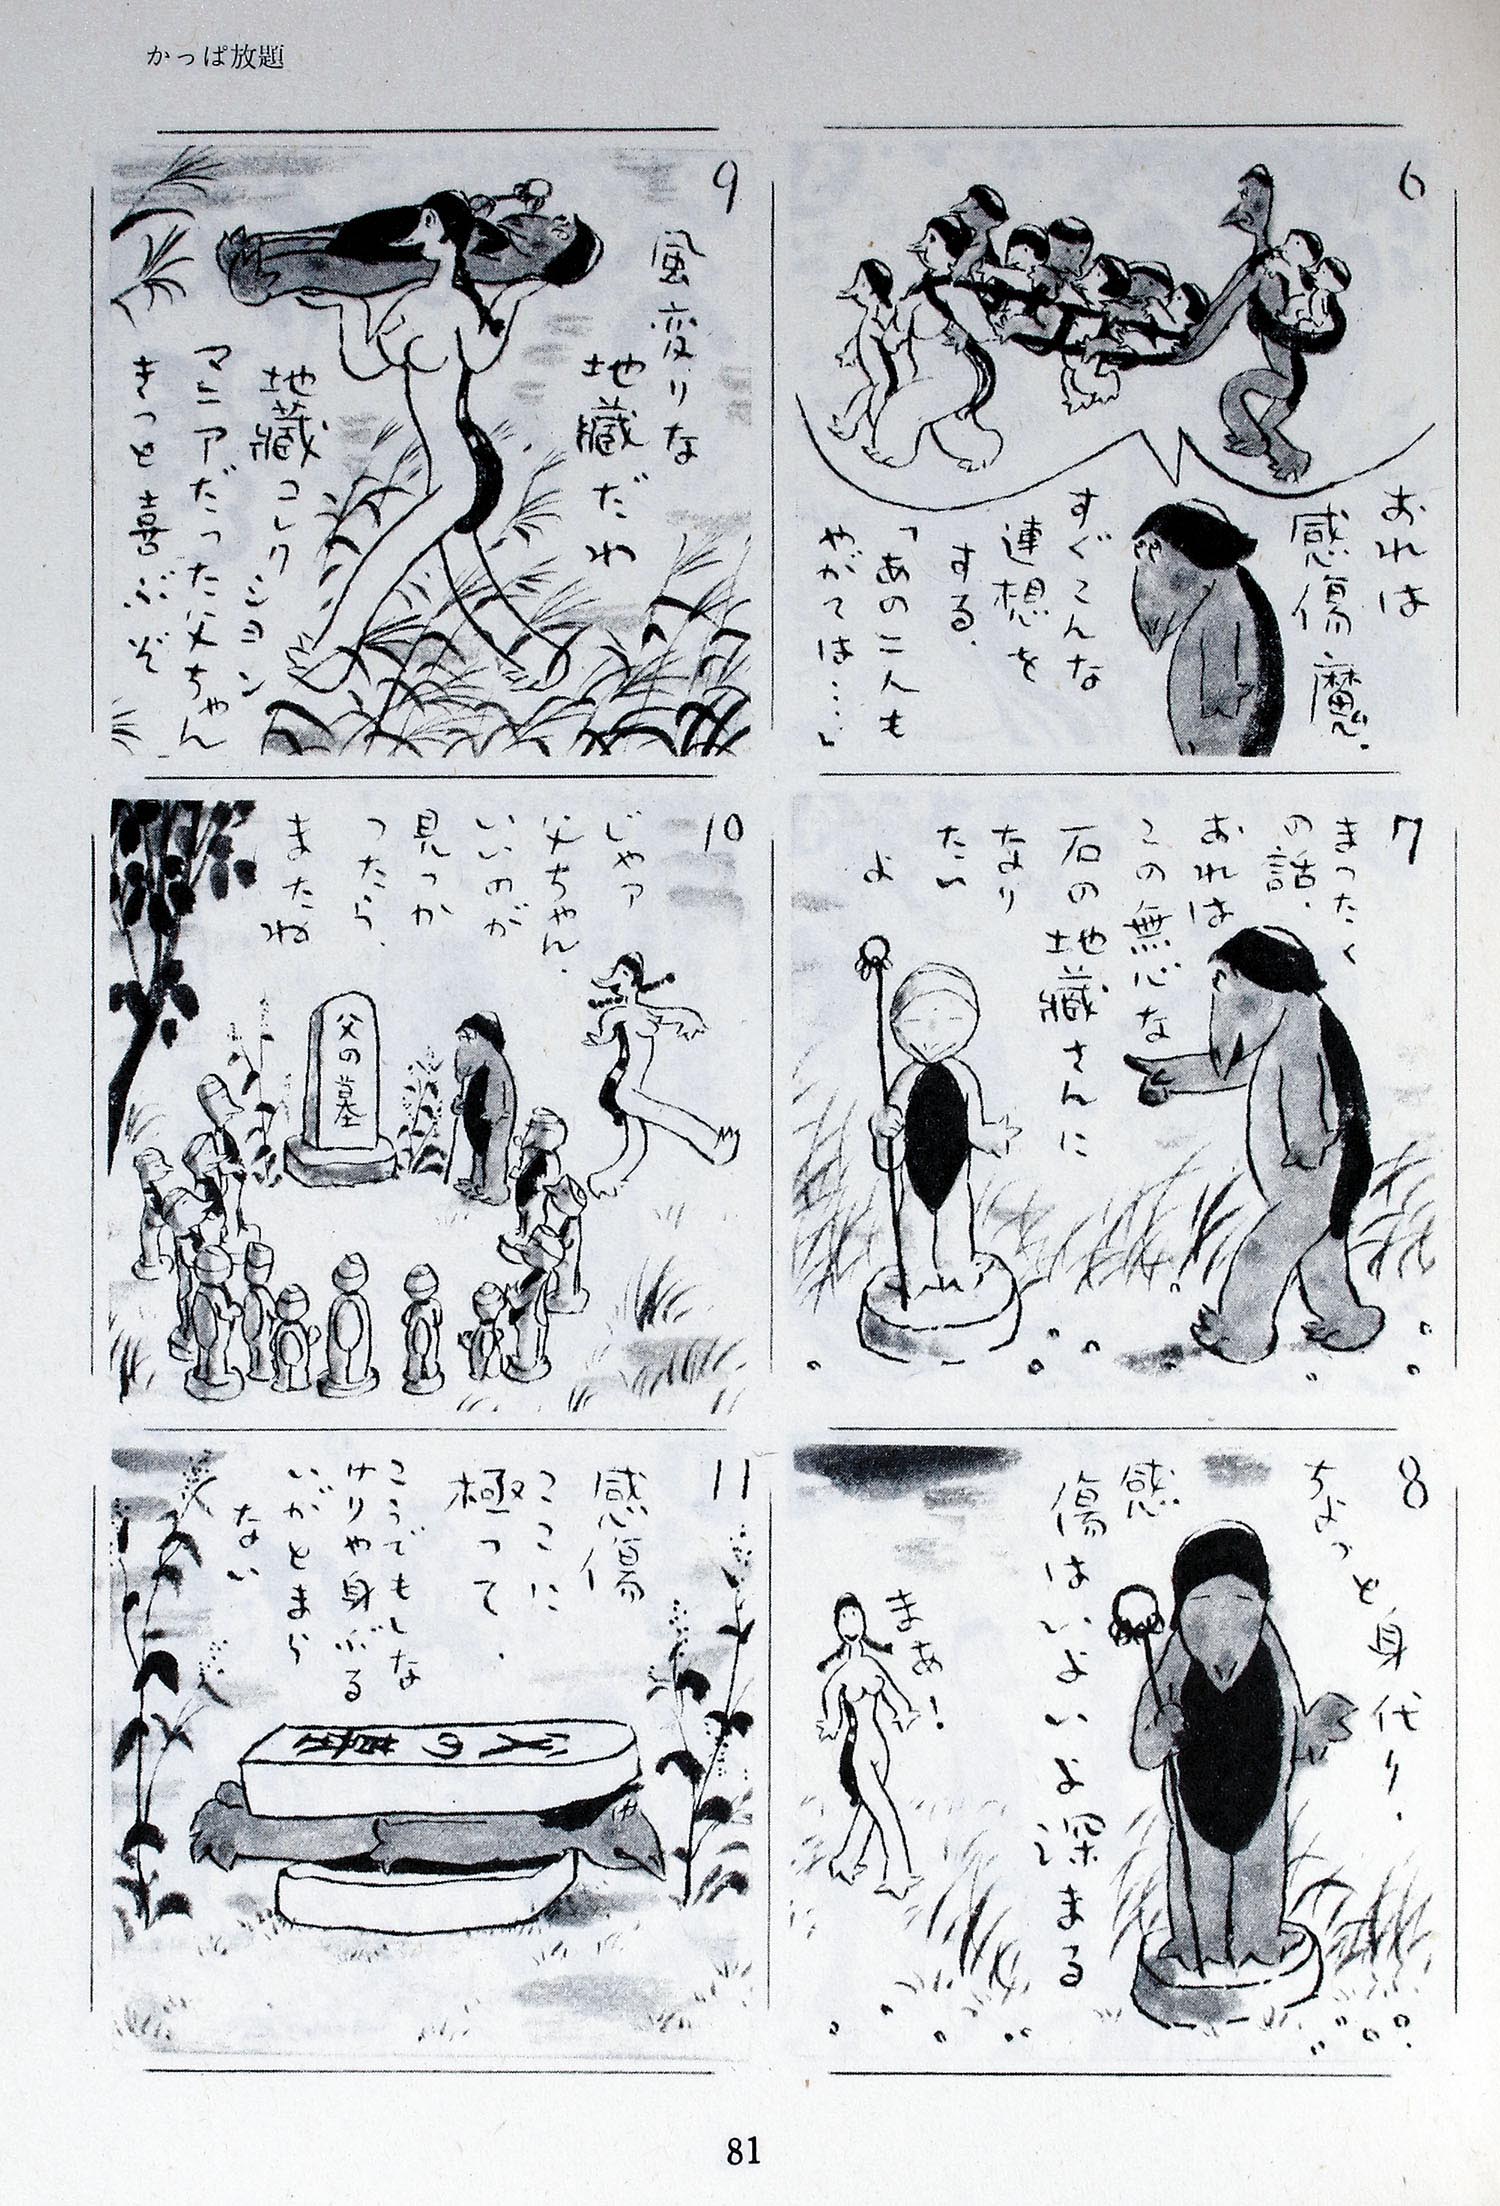 かっぱ放題
6
おれは
感傷魔.
すぐこんな
連想を
する.
「あの二人も
やがては……」
7
まったく
の話.
おれは
この無心な
石の地蔵さんに
なり
たい
よ
8
ちょっと身代り.
感
傷はいよいよ深まる
まあ!
9
風変りな
地蔵だわ
地蔵コレクション
マニアだった父ちゃん
きっと喜ぶぞ
10
じゃァ
父ちゃん.
いいのが
見っか
ったら、
またね
父の墓
11
感傷
ここに
極って.
こうでもしな
けりや身ぶる
いがとまら
ない
父の墓
81